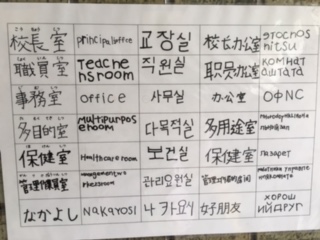 校長室 principaloffice 교장실 校长办公室 этоcпos hitsu
職員室 teache nsroom 직원실 职员办公室 комнат аштата
事務室 office 사무실 办公室 ОФNС
多目的室 multipurpos eroom 다목적실 多用途室
保健室 Healthcareroom 보건실 保健室 лазарет
管理作業員室 관리요원실
なかよし Nakayosi 나카요시 好朋友 хорош ийдруг